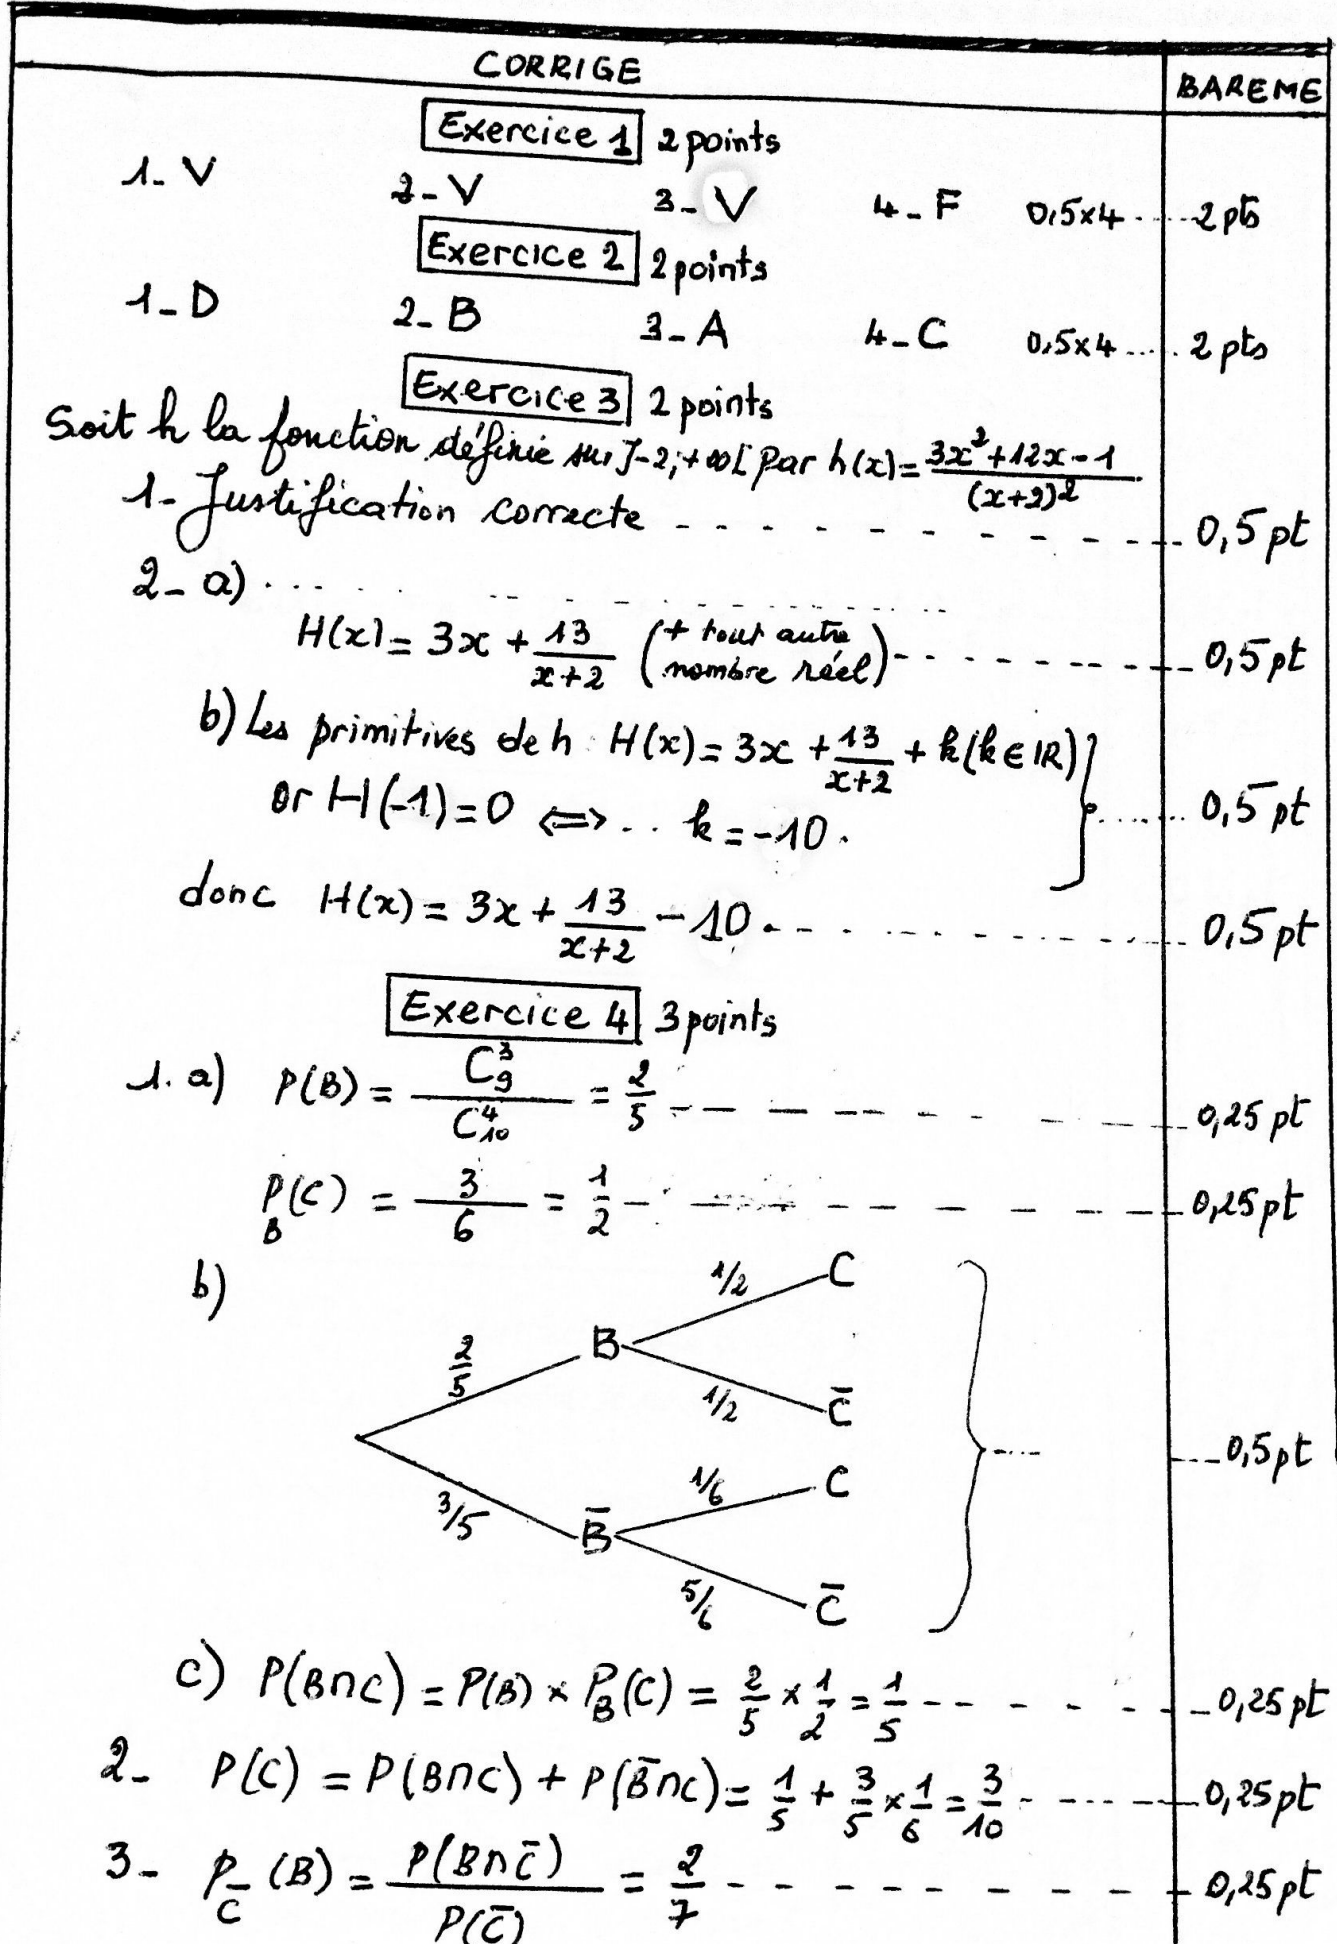 CORRIGE BAREME
Exercice 1 2 points
1- V 2- V 3- V 4- F 0,5×4 ..... 2 pts
Exercice 2 2 points
1- D 2- B 3- A 4- C 0,5×4 ..... 2 pts
Exercice 3 2 points
Soit h la fonction définie sur ]-2;+∞[ par h(x) = (3x²+12x-1)/(x+2)²
1- Justification correcte - - - - - - - - - 0,5 pt
2- a) . . . . . . . . . . . .
H(x) = 3x + 13/(x+2) (+ tout autre nombre réel) - - - - - - - 0,5 pt
b) Les primitives de h : H(x) = 3x + 13/(x+2) + k (k ∈ IR)
or H(-1) = 0 ⟺ .. k = -10. ...... 0,5 pt
donc H(x) = 3x + 13/(x+2) - 10. - - - - - - - 0,5 pt
Exercice 4 3 points
1. a) P(B) = C₉³/C₁₀⁴ = 2/5 - - - - - - - 0,25 pt
P_B(C) = 3/6 = 1/2 - - - - - - - 0,25 pt
b)
1/2 C
2/5 B
1/2 C̄
.... 0,5 pt
1/6 C
3/5 B̄
5/6 C̄
c) P(B∩C) = P(B) × P_B(C) = 2/5 × 1/2 = 1/5 - - - - - 0,25 pt
2- P(C) = P(B∩C) + P(B̄∩C) = 1/5 + 3/5 × 1/6 = 3/10 - - - - - 0,25 pt
3- P_C̄(B) = P(B∩C̄)/P(C̄) = 2/7 - - - - - - - 0,25 pt